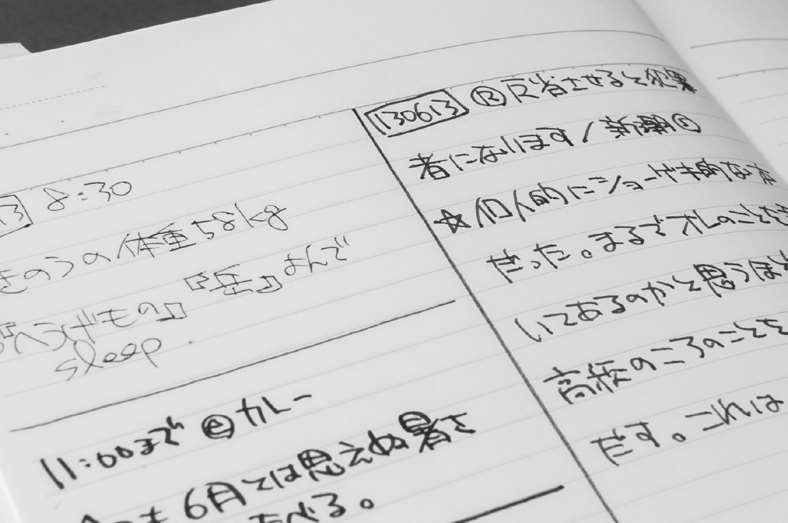 13 8:30
きのうの体重58kg
『へうげもの』『岳』よんで
sleep.
11:00まで 食 カレー
6月とは思えぬ暑さ
食べる。
130613 R 反省させると犯罪
者になります/新潮
☆個人的にショーゲキ的な
だった。まるでオレのことを
いてあるのかと思うほど
高校のころのことを
だす。これは